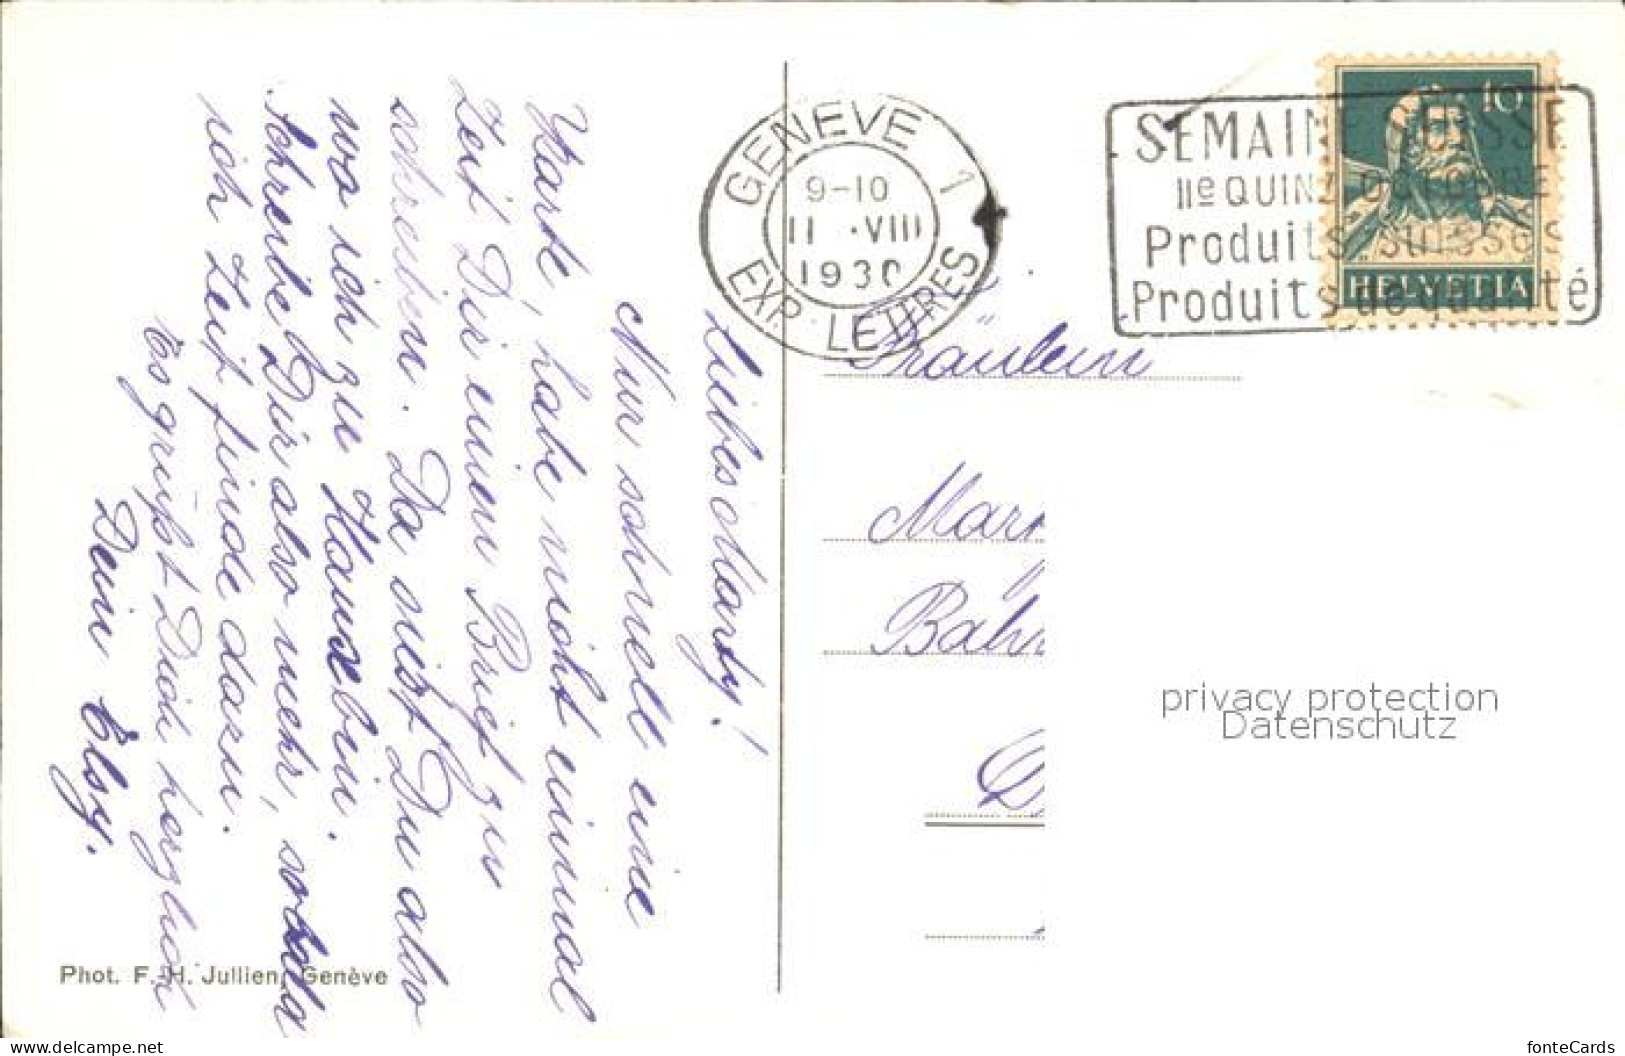 Liebes Marty!
Nur schnell eine
Karte, habe nicht einmal
Zeit Dir einen Brief zu
schreiben. Da siehst Du also
wo ich zu Hause bin.
Schreibe Dir also mehr, sobald
ich Zeit finde dazu.
Es grüsst Dich herzlich
Dein Elsy.
Phot. F.-H. Jullien, Genève
GENEVE 1
9-10
11 .VIII
1930
EXP. LETTRES
SEMAINE SUISSE
IIe QUINZ. OCTOBRE
Produits suisses
Produits de qualité
10
HELVETIA
Fräulein
Mar
Bahn
privacy protection
Datenschutz
delcampe.net
fonteCards